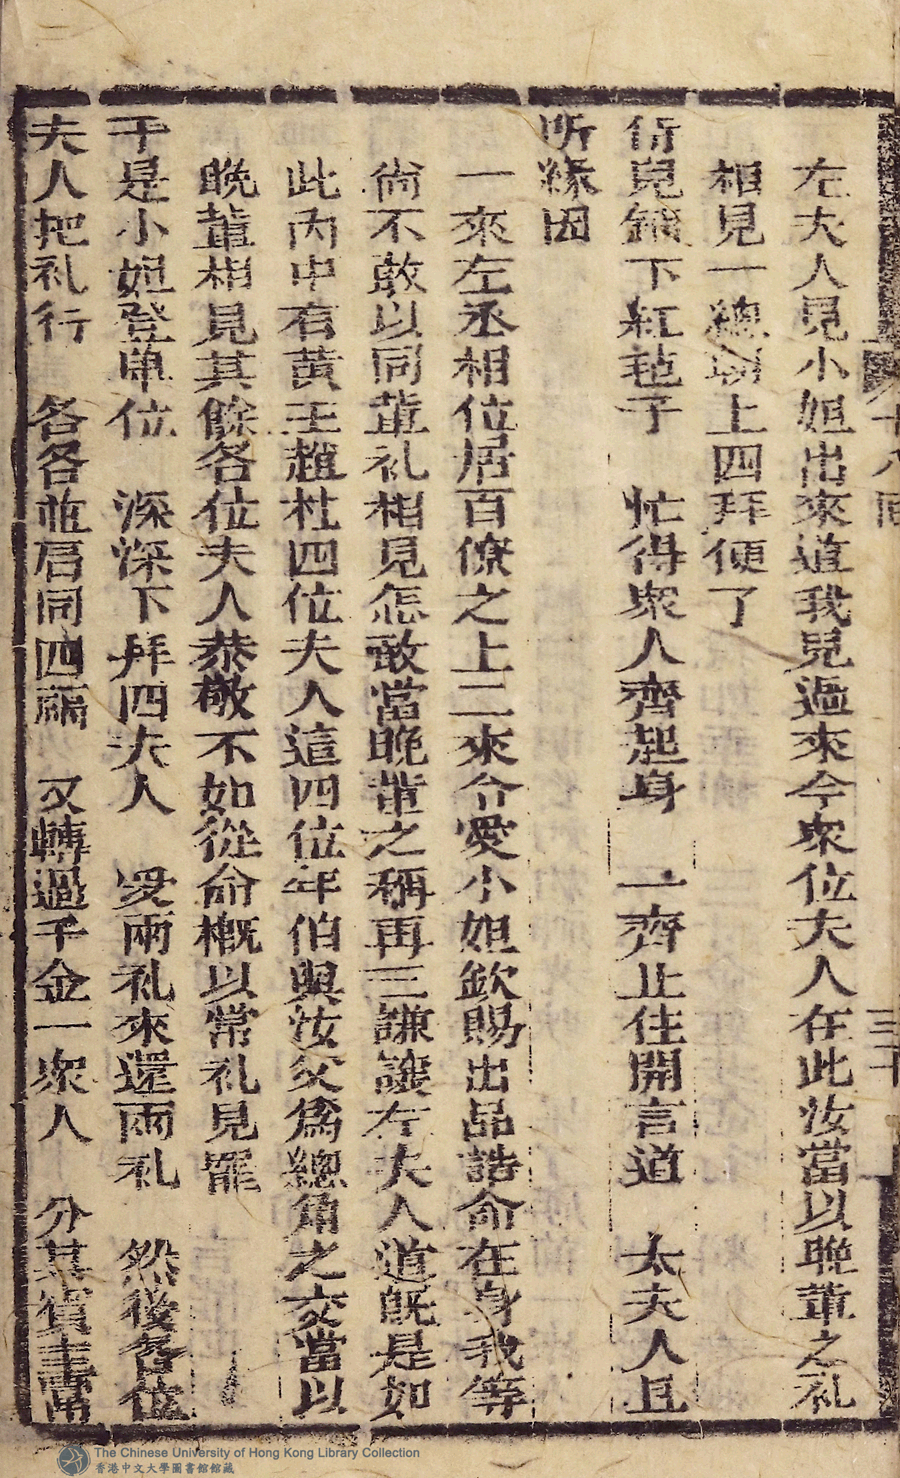 十八回
三十
左夫人見小姐出來道我兒過來今衆位夫人在此汝當以晚輩之礼
相見一總朝上四拜便了
侍兒鋪下紅毡子　忙得衆人齊起身　一齊止住開言道　太夫人且
听緣因
一來左丞相位居百僚之上二來令愛小姐欽賜出品誥命在身我等
尚不敢以同輩礼相見怎敢當晚輩之稱再三謙讓左夫人道既是如
此內中有黃王趙杜四位夫人這四位年伯與汝父爲總角之交當以
晚輩相見其餘各位夫人恭敬不如從命槪以常礼見罷
于是小姐登單位　深深下拜四夫人　受兩礼來還兩礼　然後各位
夫人把礼行　各各並肩同四福　又轉過千金一衆人　分其賓主
The Chinese University of Hong Kong Library Collection
香港中文大學圖書館館藏